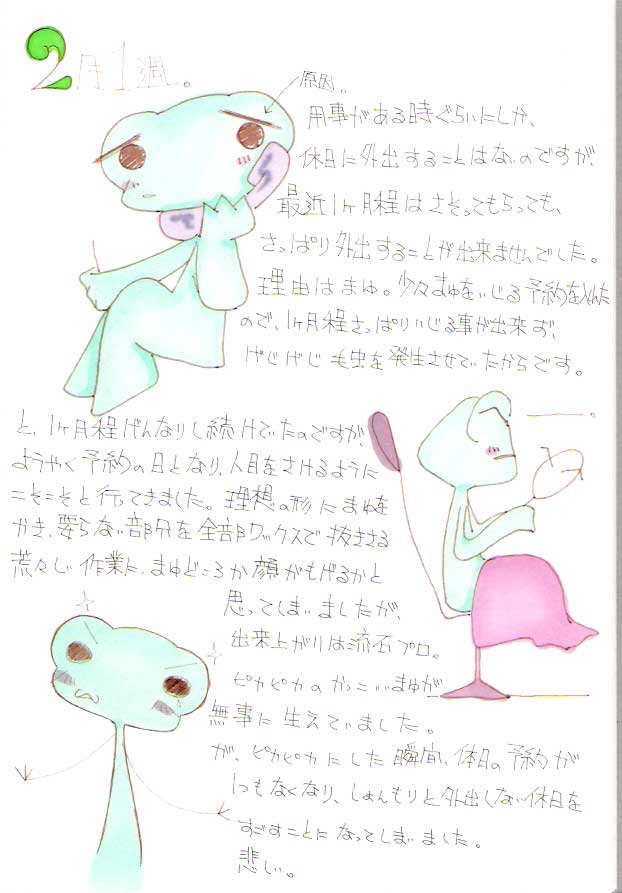 2月1週。
原因。
用事がある時ぐらいにしか、
休日に外出することはないのですが、
最近1ヶ月程はさそってもらっても、
さっぱり外出することが出来ませんでした。
理由はまゆ。少々まゆをいじる予約を入れた
ので、1ヶ月程さっぱりいじる事が出来ず、
げじげじ毛虫を発生させていたからです。
と、1ヶ月程げんなりし続けていたのですが、
ようやく予約の日となり、人目をさけるように
こそこそと行ってきました。理想の形にまゆを
かき、要らない部分を全部ワックスで抜きさる
荒々しい作業に、まゆどころか顔がもげるかと
思ってしまいましたが、
出来上がりは流石プロ。
ピカピカのかっこいいまゆが
無事に生えていました。
が、ピカピカにした瞬間、休日の予約が
1つもなくなり、しょんもりと外出しない休日を
すごすことになってしまいました。
悲しい。